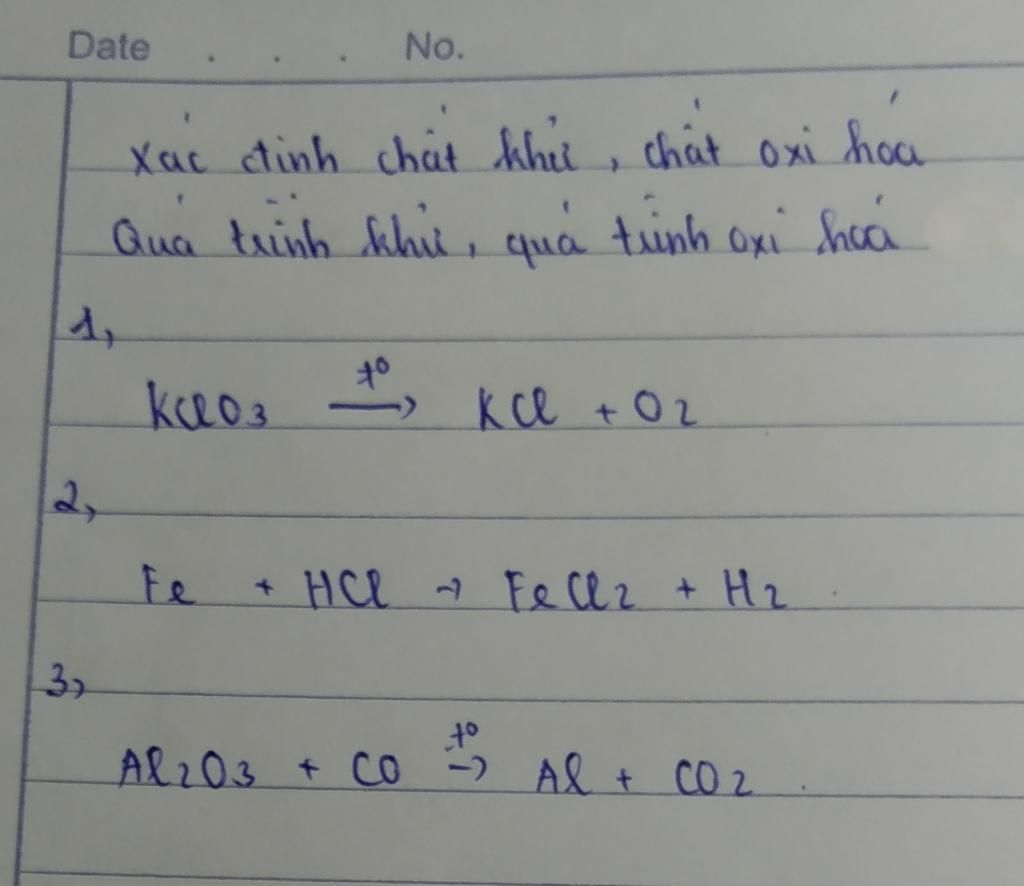 Date . . . No.
Xác định chất khử, chất oxi hóa
Quá trình khử, quá trình oxi hoá
1,
KClO3 t° → KCl + O2
2,
Fe + HCl → FeCl2 + H2.
3,
Al2O3 + CO t° → Al + CO2.